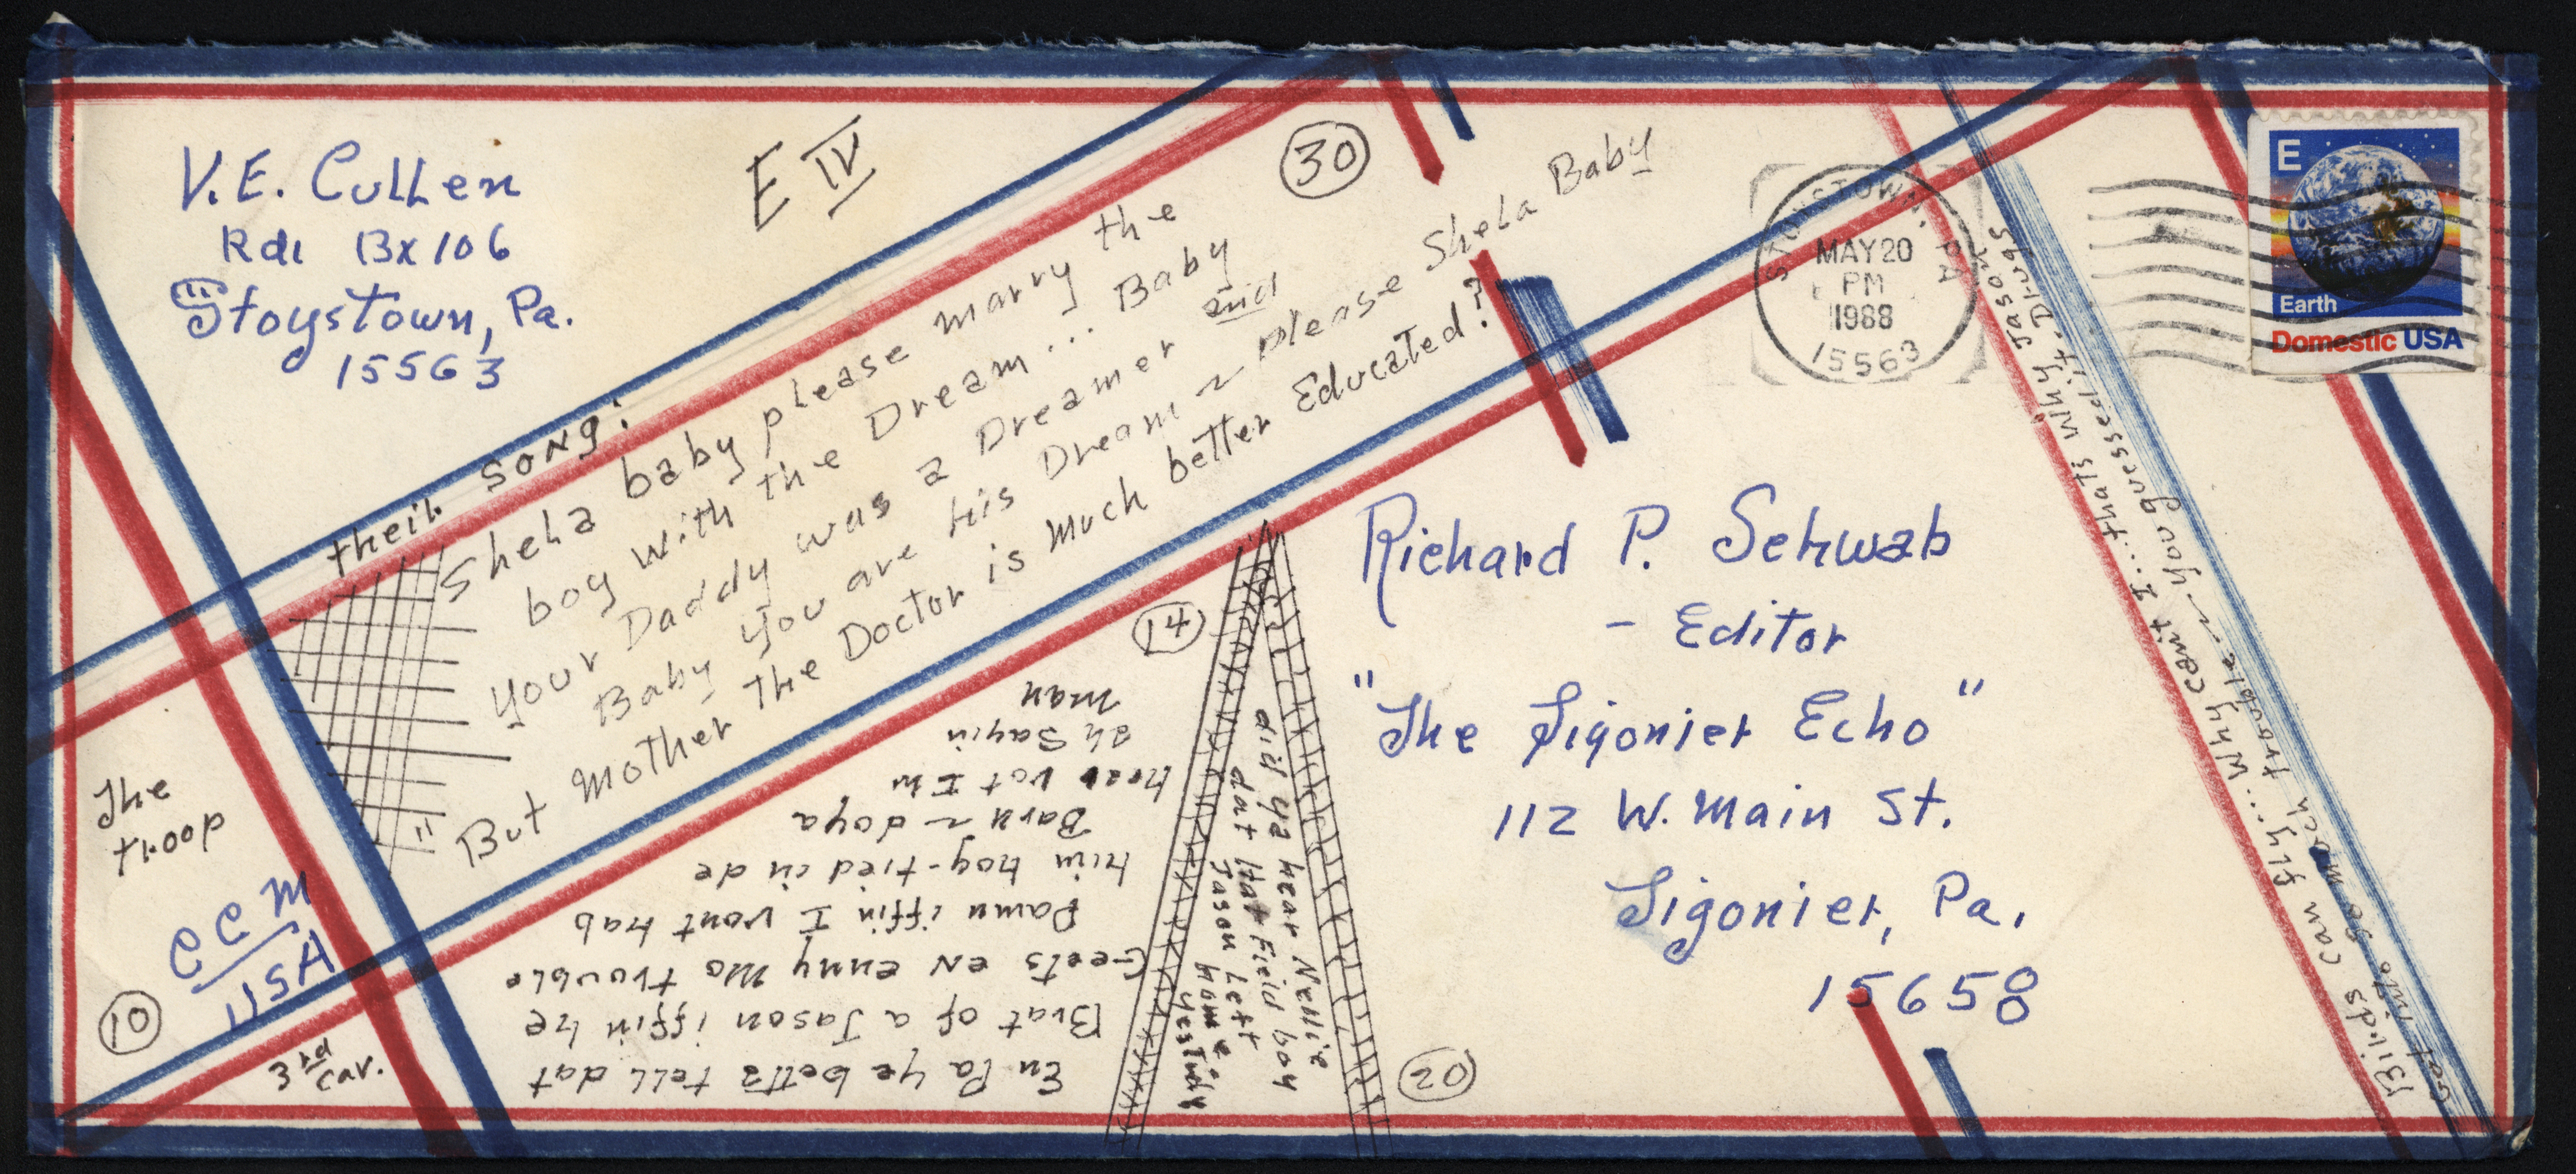 V.E. Cullen
Rd1 Bx 106
Stoystown, Pa.
15563
E IV
30
STOYSTOWN, PA
MAY 20
PM
1988
15563
E
Earth
Domestic USA
their song:
Shela baby please marry the
boy with the Dream... Baby
Your Daddy was a Dreamer and
Baby you are his Dream ~ please Shela Baby
But Mother the Doctor is Much better Educated?
Richard P. Schwab
- Editor
"The Ligonier Echo"
112 W. Main St.
Ligonier, Pa.
15658
The
troop
CCM
USA
10
3rd
Cav.
14
En Pa Ye betta tell dat
Brat of a Jason iffin he
Geets en enny Mo trouble
Damn iffin I vont hab
him hog-tied in de
Barn ~ doya
hear vot Im
ah Sayin
man
did ya hear Nellie
dat HatField boy
Jason left
home
Yestidy
20
Birds can fly... Why cant I... thats why Jason
Got into so much trouble ~ you guessed it. Drugs